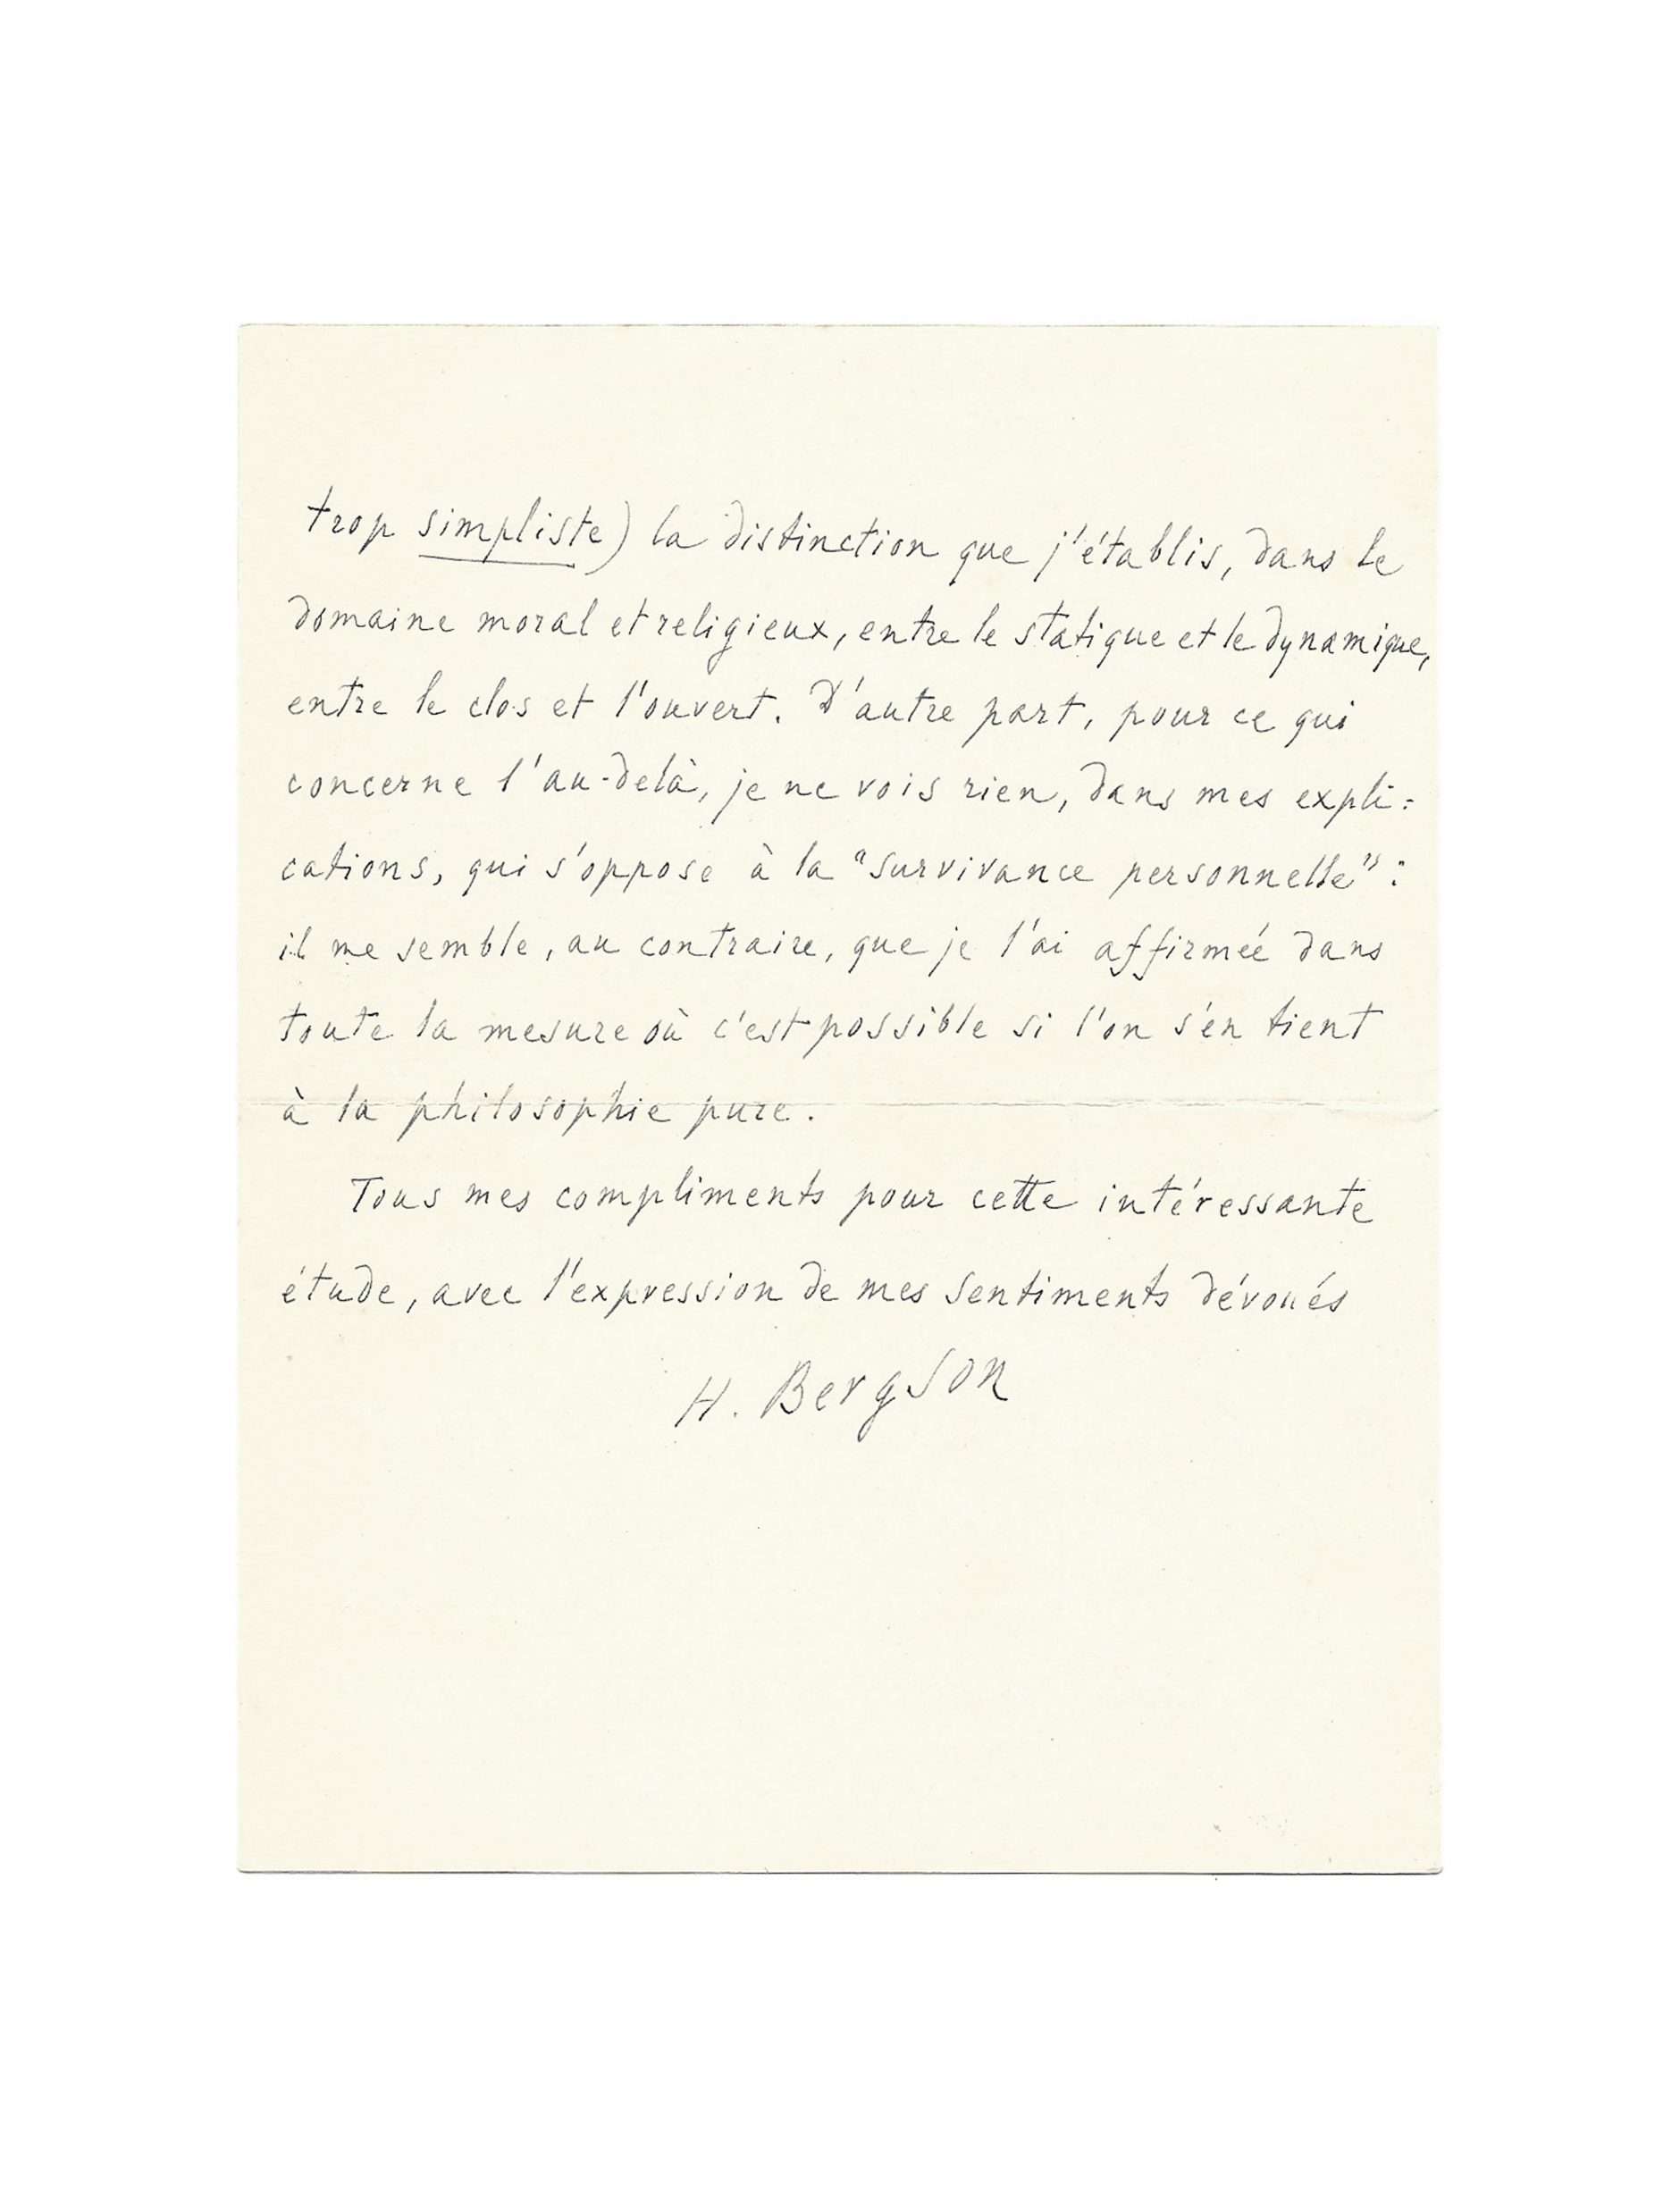 trop simpliste) la distinction que j'établis, dans le
domaine moral et religieux, entre le statique et le dynamique,
entre le clos et l'ouvert. D'autre part, pour ce qui
concerne l'au-delà, je ne vois rien, dans mes expli=
cations, qui s'oppose à la "survivance personnelle" :
il me semble, au contraire, que je l'ai affirmée dans
toute la mesure où c'est possible si l'on s'en tient
à la philosophie pure.
Tous mes compliments pour cette intéressante
étude, avec l'expression de mes sentiments dévoués
H. Bergson